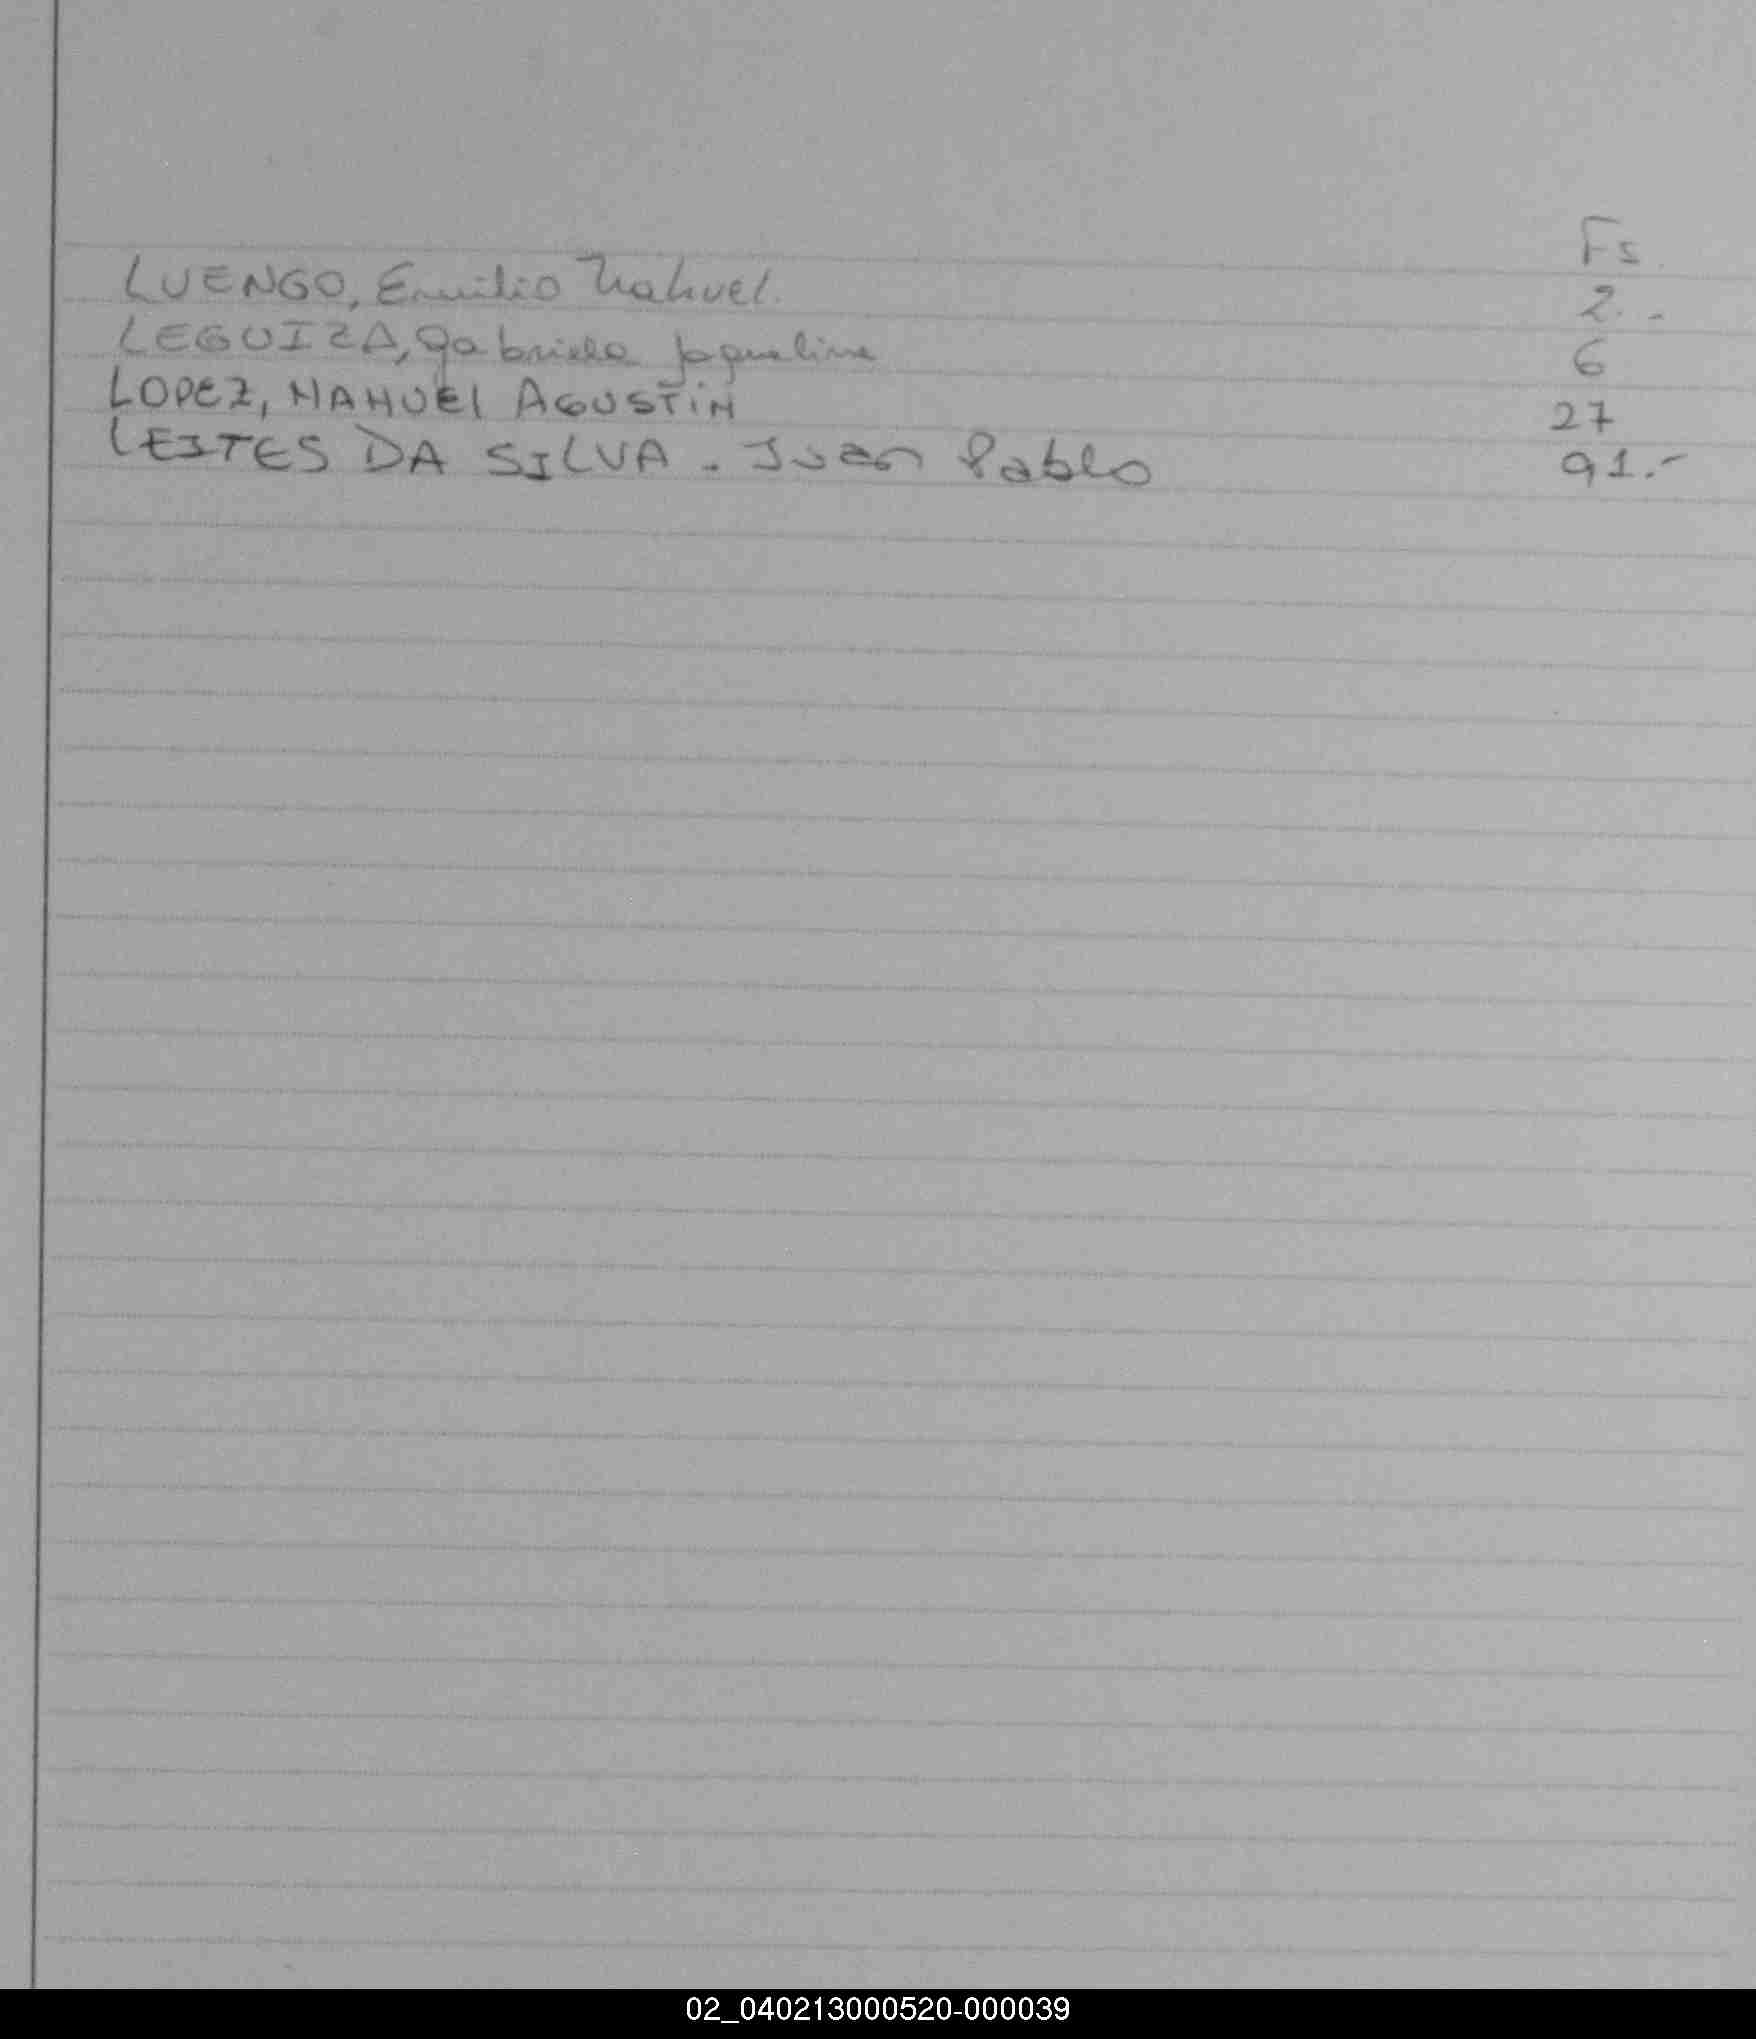 Fs.
LUENGO, Emilio Nahuel. 2.-
LEGUIZA, Gabriela Jaqueline 6
LOPEZ, NAHUEl AGUSTiN 27
LEITES DA SILVA. Juan Pablo 91.-
02_040213000520-000039